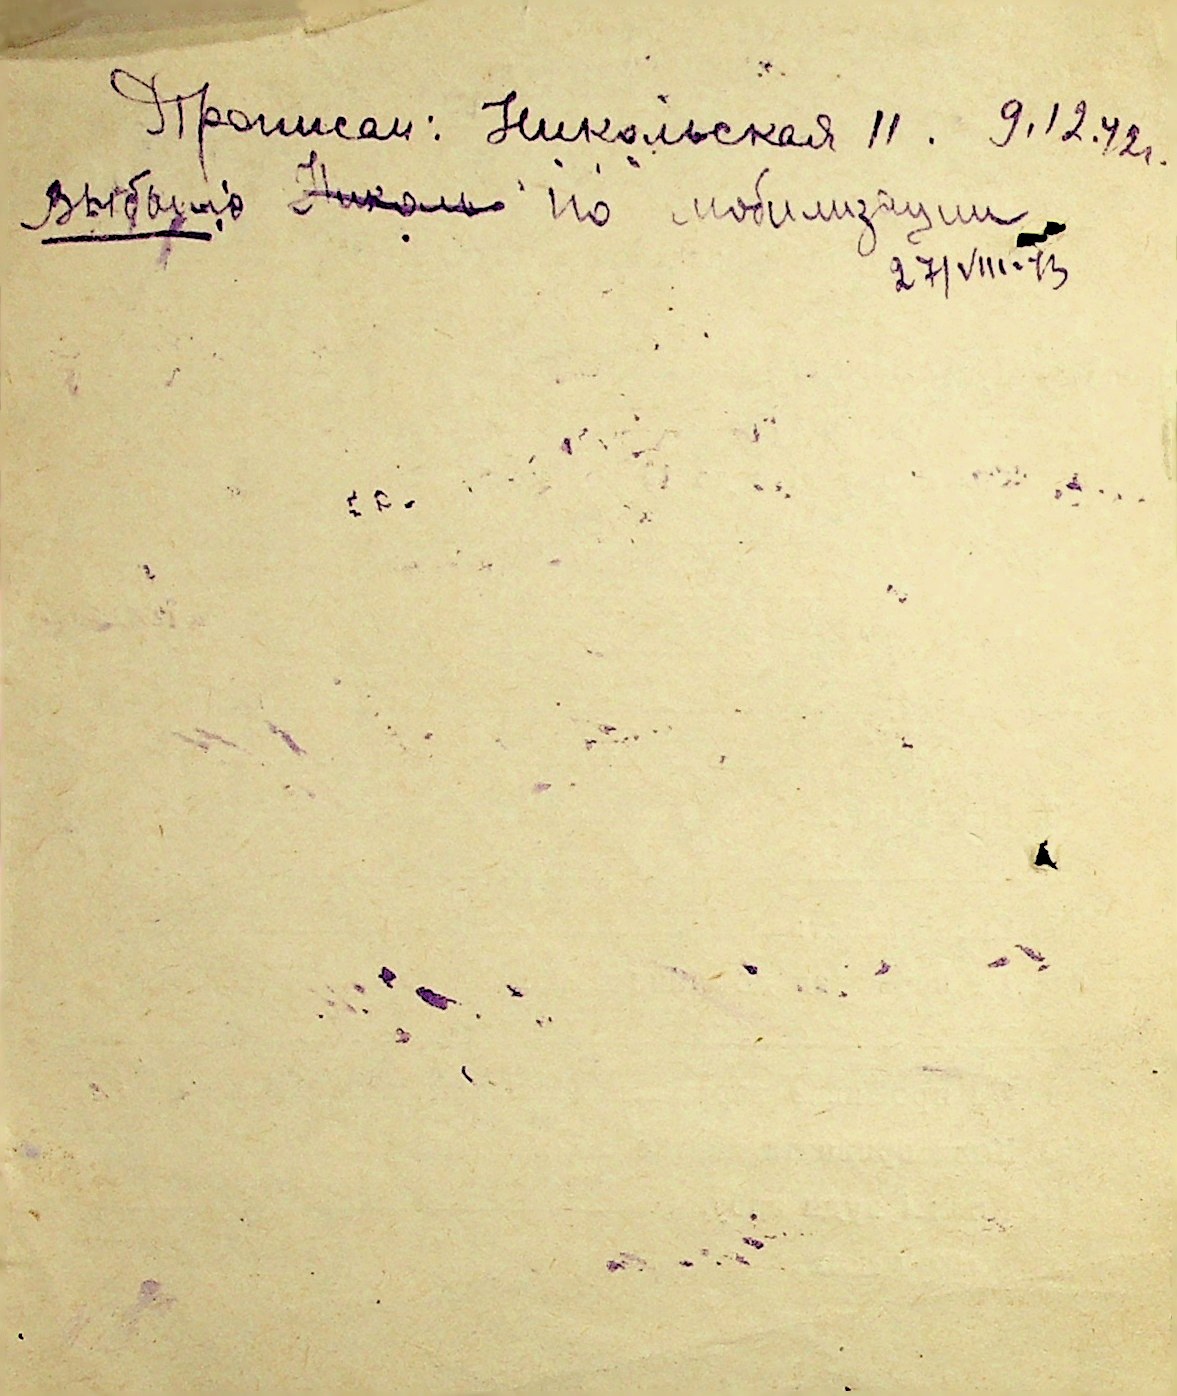 Прописан: Никольская 11. 9.12.42г.
Выбыл Николь по мобилизации
27/VIII-43